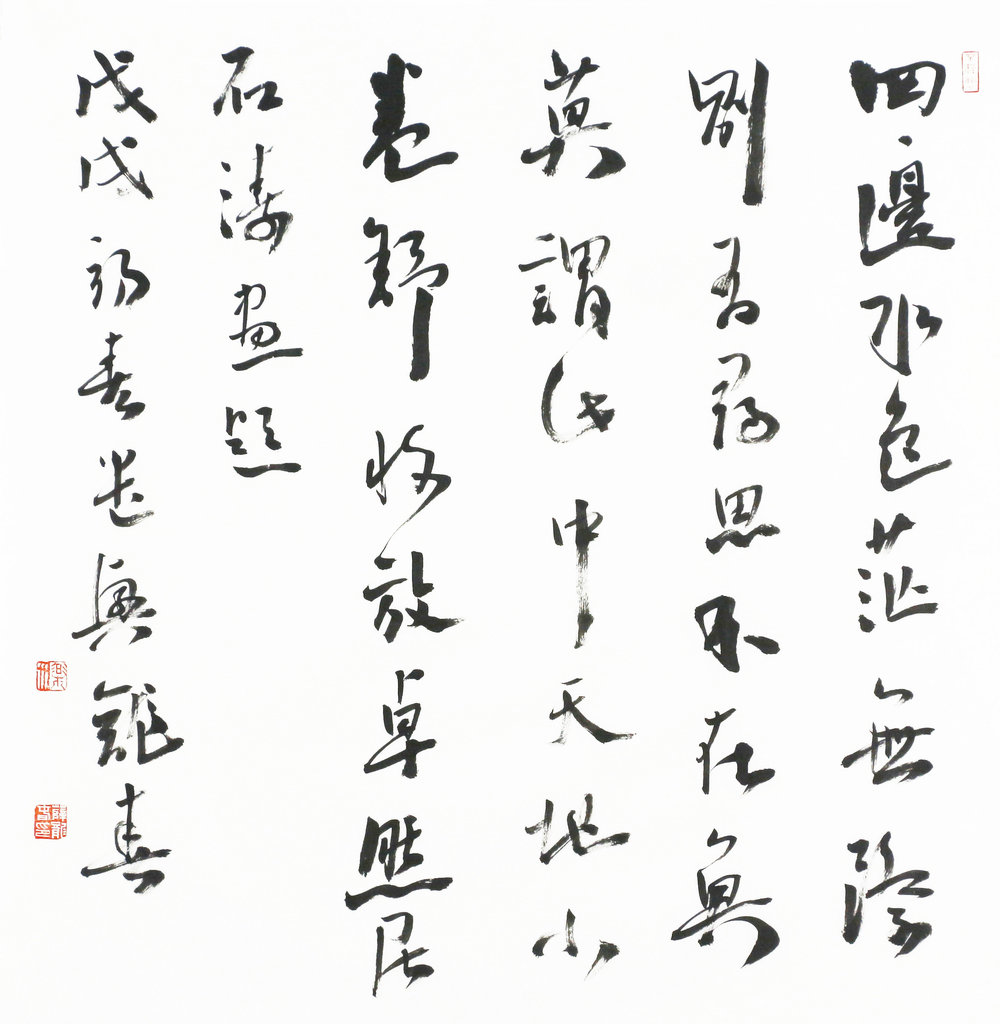 四邊水色茫無際
別有尋思不在魚
莫謂此中天地小
卷舒收放卓然居
石濤畫題
戊戌初春興龍春
薛龍春印